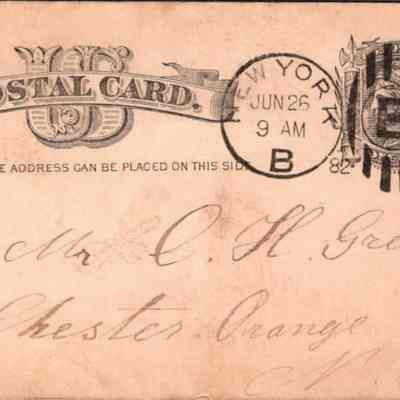 US
POSTAL CARD.
NEW YORK
JUN 26
9 AM
B
82
E
E ADDRESS CAN BE PLACED ON THIS SIDE
Mr C. H. Gre
Chester Orange
N.